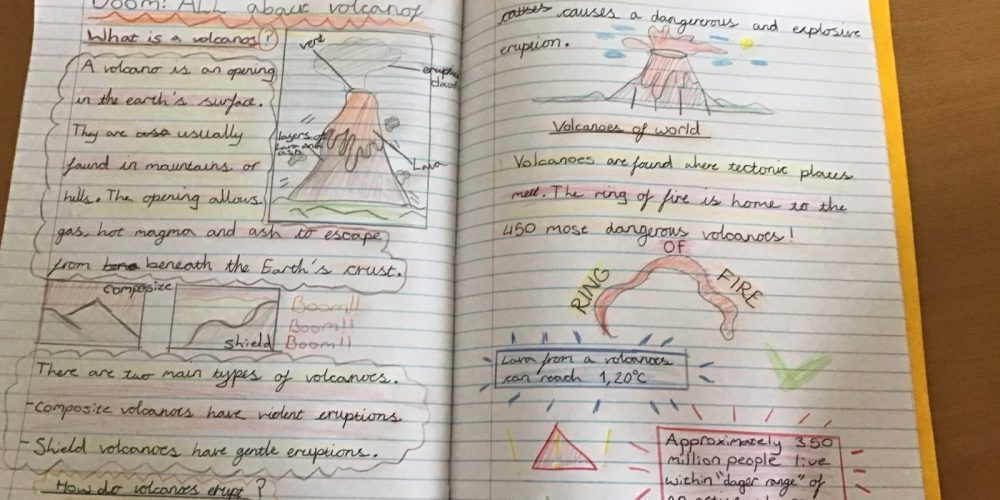 Doom! ALL about volcanos
What is a volcanos?
A volcano is an opening
in the earth's surface.
They are usually
found in mountains or
hills. The opening allows
gas, hot magma and ash to escape
from beneath the Earth's crust.
vent
eruption
cloud
layers of
lava and
ash
Lava
Composite
Shield
Boom!!
Boom!!
Boom!!
There are two main types of volcanoes.
-Composite volcanoes have violent eruptions.
- Shield volcanoes have gentle eruptions.
How do volcanoes erupt?
causes causes a dangerous and explosive
eruption.
Volcanoes of world
Volcanoes are found where tectonic plates
meet. The ring of fire is home to the
450 most dangerous volcanoes!
RING OF FIRE
Lava from a volcanoes
can reach 1,20°C
Approximately 350
million people live
within "dager range" of
an active